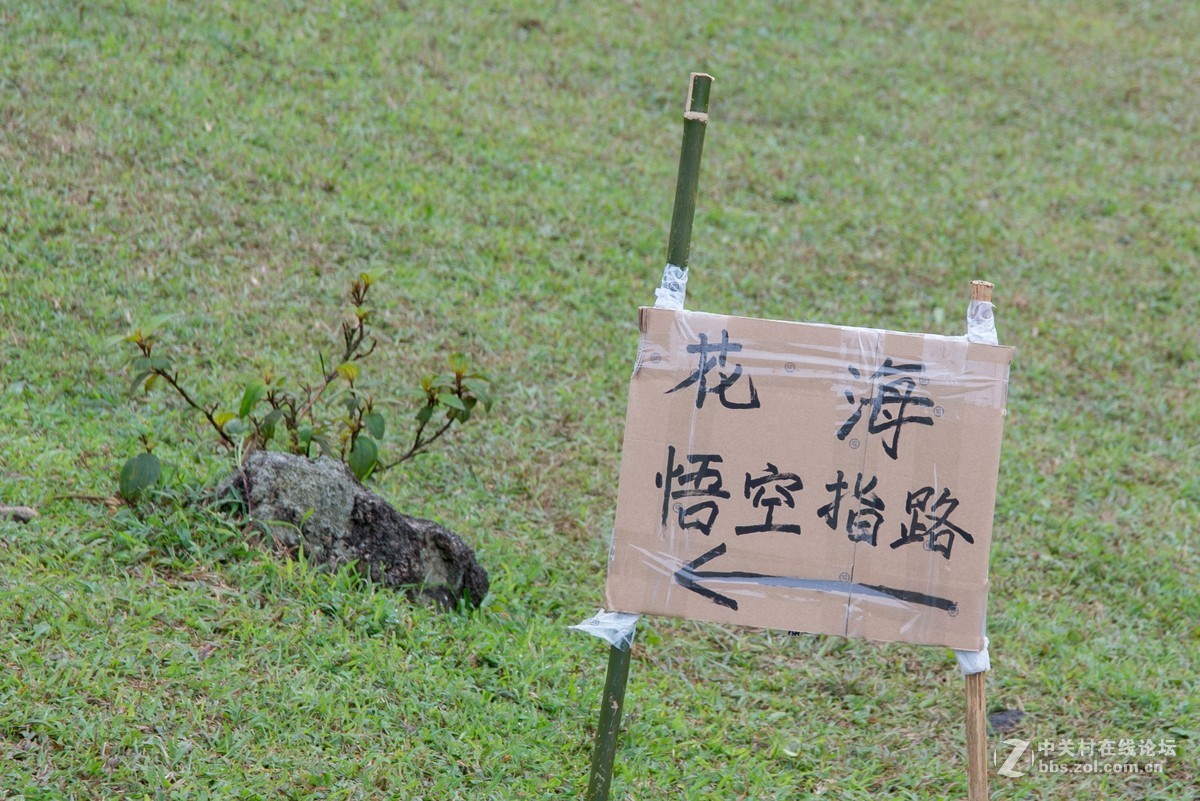 花 海
悟空指路
中关村在线论坛
bbs.zol.com.cn